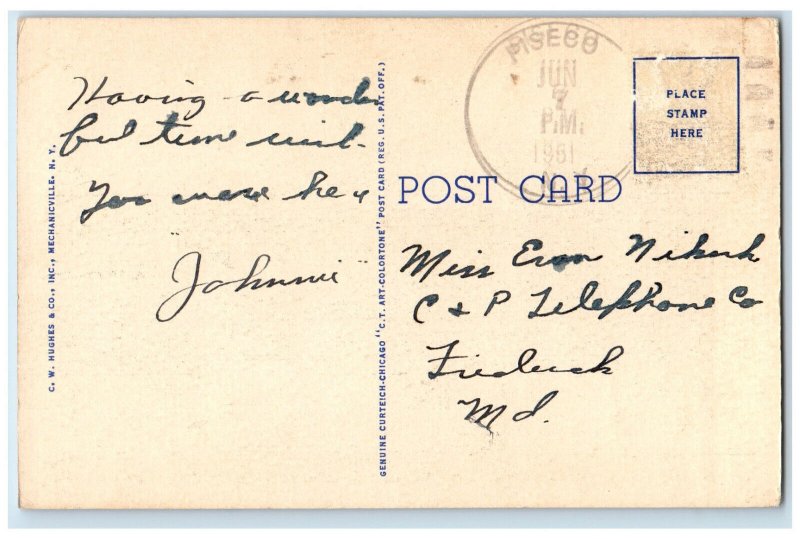 Having a wonder
ful time wish
You were here
Johnnie
C. W. HUGHES & CO., INC., MECHANICVILLE. N. Y.
GENUINE CURTEICH-CHICAGO "C.T. ART-COLORTONE" POST CARD (REG. U.S. PAT. OFF.)
PISECO
JUN
7
P.M.
1951
N.Y.
PLACE
STAMP
HERE
POST CARD
Miss
C & P Telephone Co
Frederick
Md.